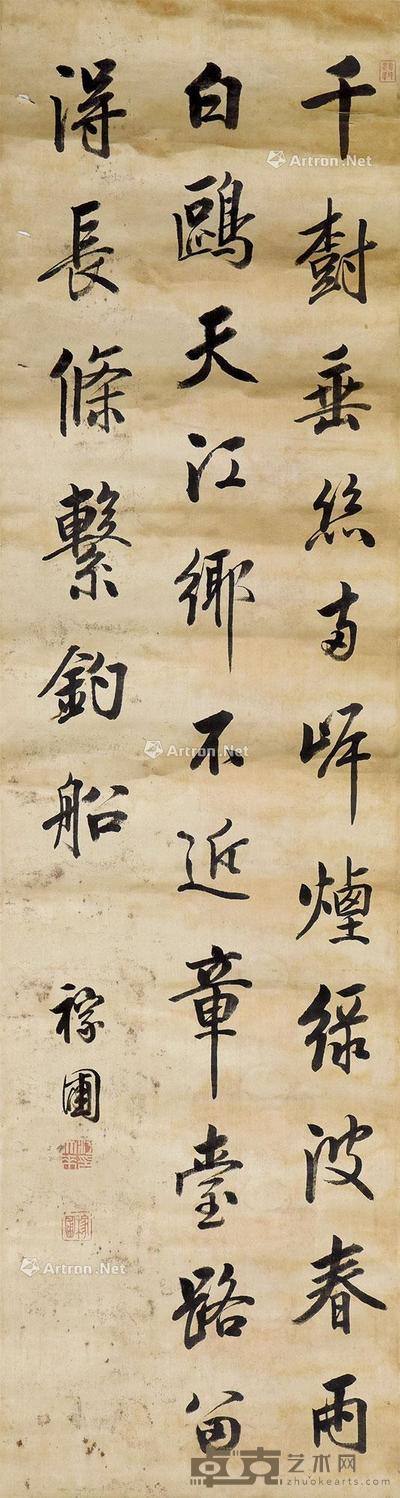 千樹垂絲兩岸煙綠波春雨
白鷗天江鄉不近章臺路留
得長條繫釣船
稼圃
Artron.Net
Artron.Net
Artron.Net
卓克艺术网
zhuokearts.com